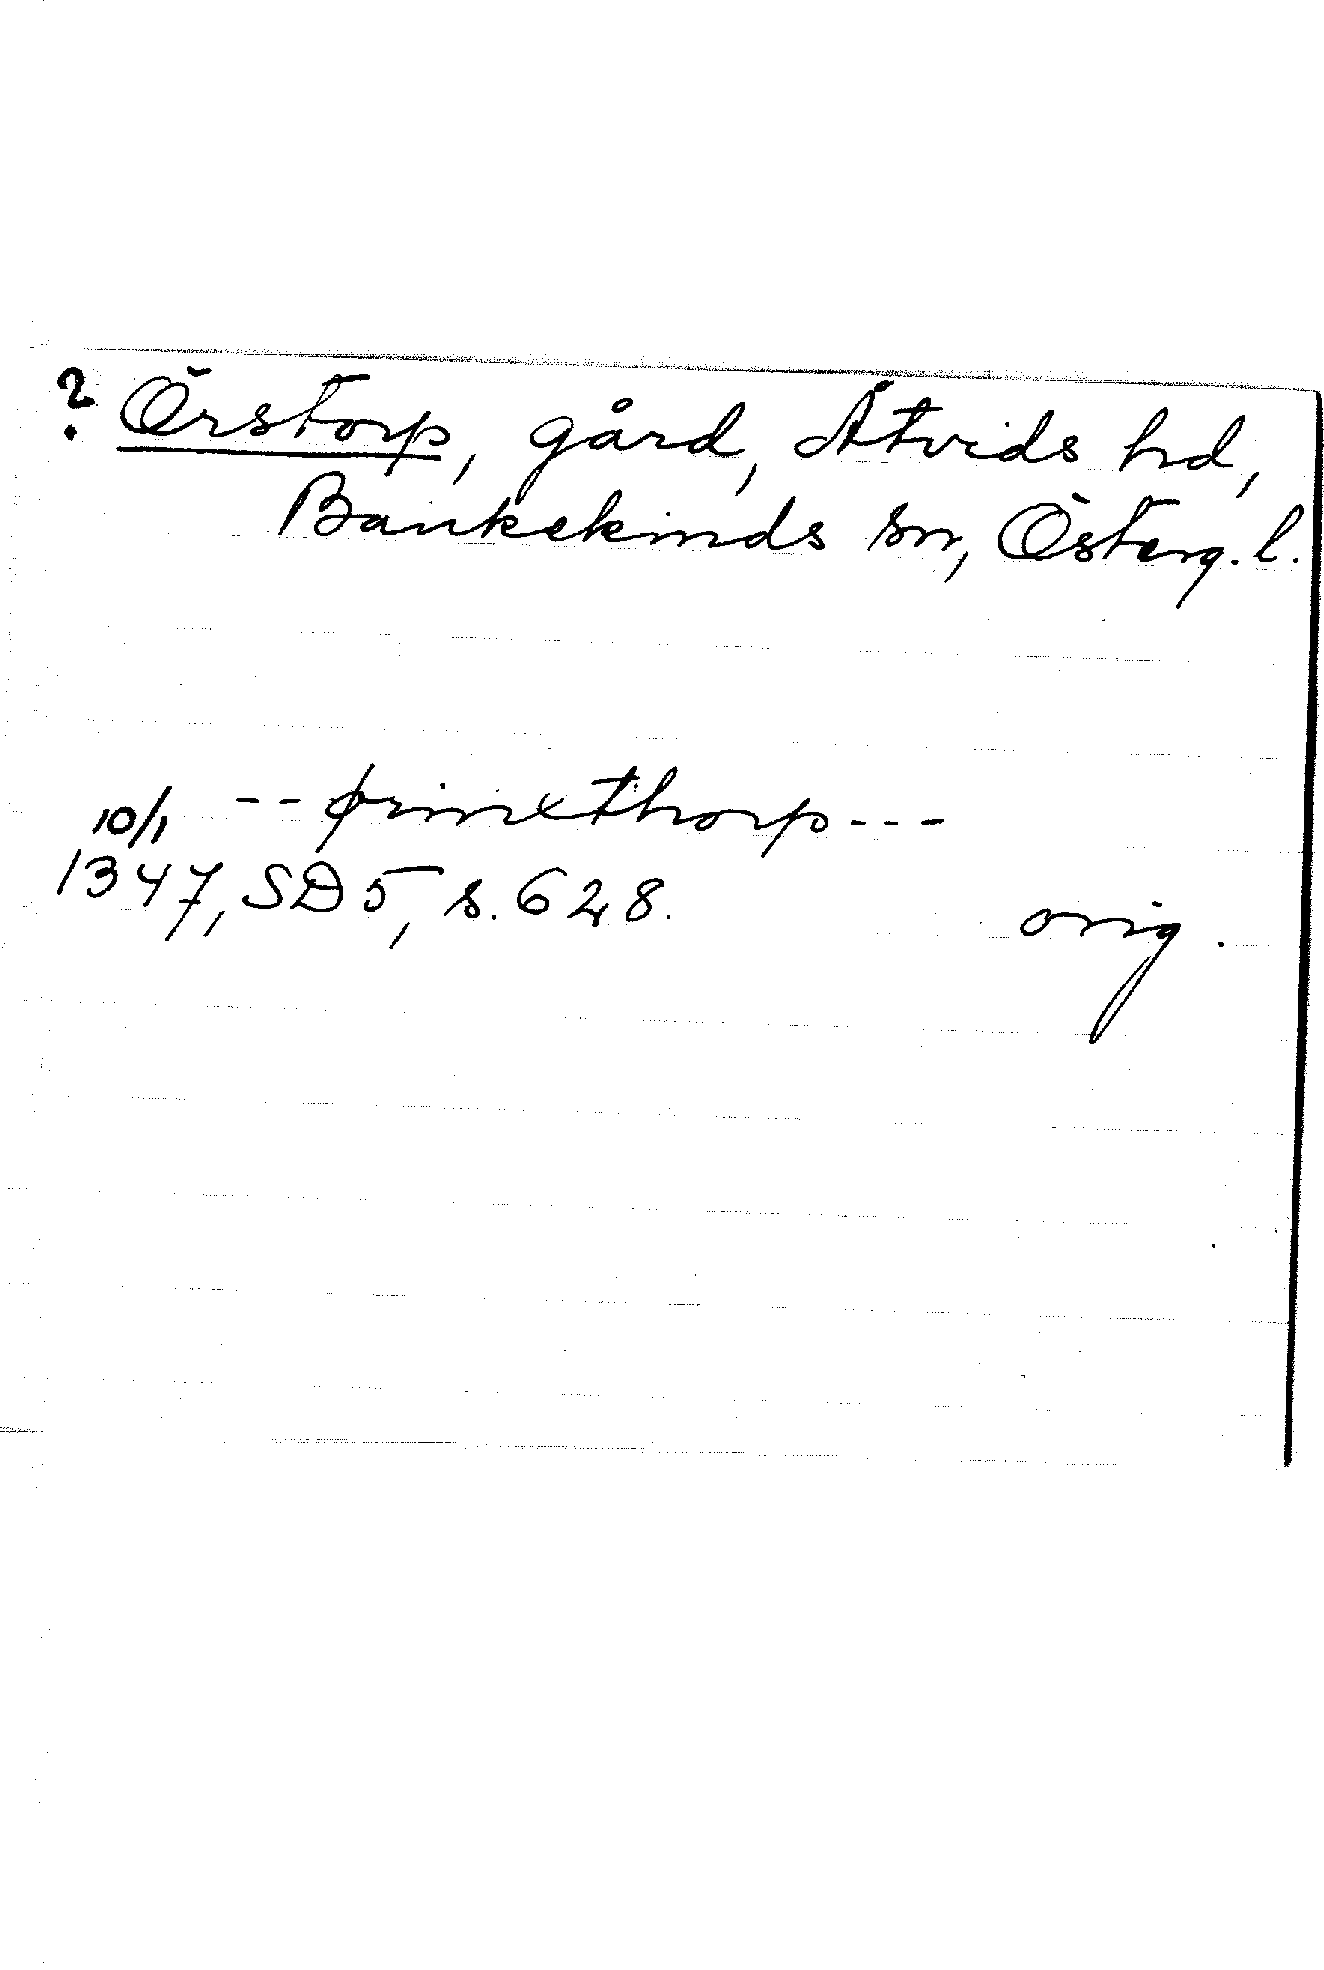 ? Örstorp, gård, Åtvids hd,
Bankekinds sn, Österg. l.
-- ørinxthorp ---
10/1
1347, SD 5, s. 628.
orig.